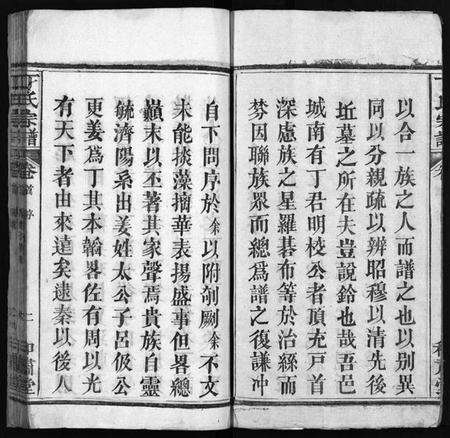 以合一族之人而譜之也以別異
同以分親疏以辨昭穆以清先後
坵墓之所在夫豈說鈴也哉吾邑
城南有丁君明校公者頂充戸首
深慮族之星羅碁布等於治絲而
棼因聯族眾而總爲譜之復謙冲
自下問序於余以附剞劂余不文
未能掞藻摛華表揚盛事但畧總
巔末以丕著其家聲焉貴族自靈
毓濟陽系出姜姓太公子呂伋公
更姜爲丁其本翰畧佐有周以光
有天下者由來遠矣遠秦以後人
丁氏宗譜
卷首 序
二